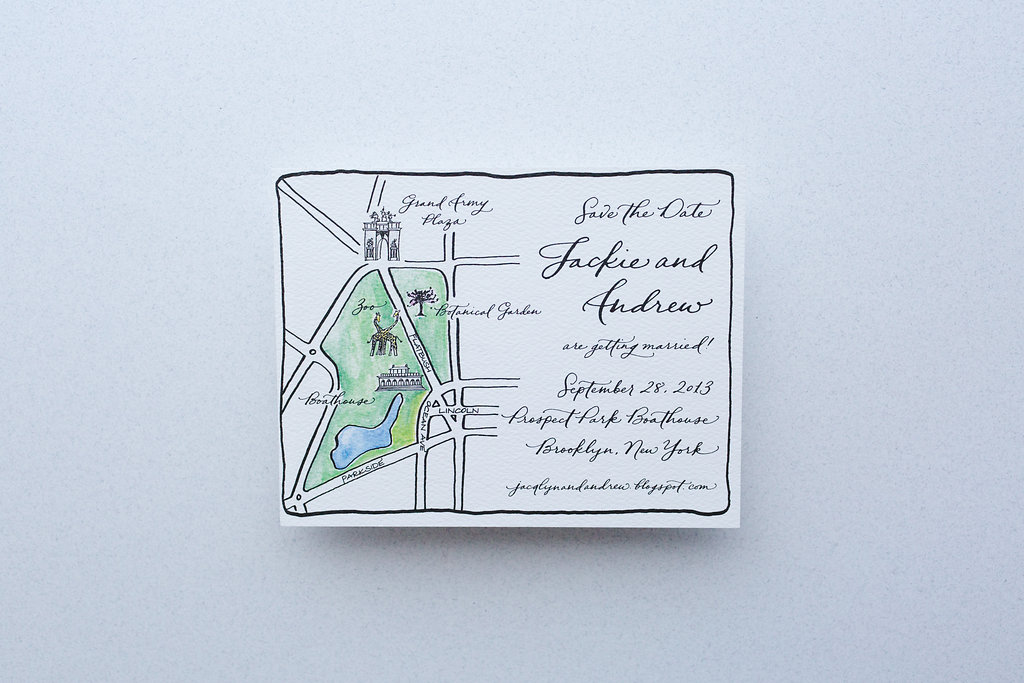 Grand Army
Plaza
Zoo
Botanical Garden
FLATBUSH
Boathouse
OCEAN AVE
LINCOLN
PARKSIDE
Save the Date
Jackie and
Andrew
are getting married!
September 28, 2013
Prospect Park Boathouse
Brooklyn, New York
jacqlynandandrew.blogspot.com